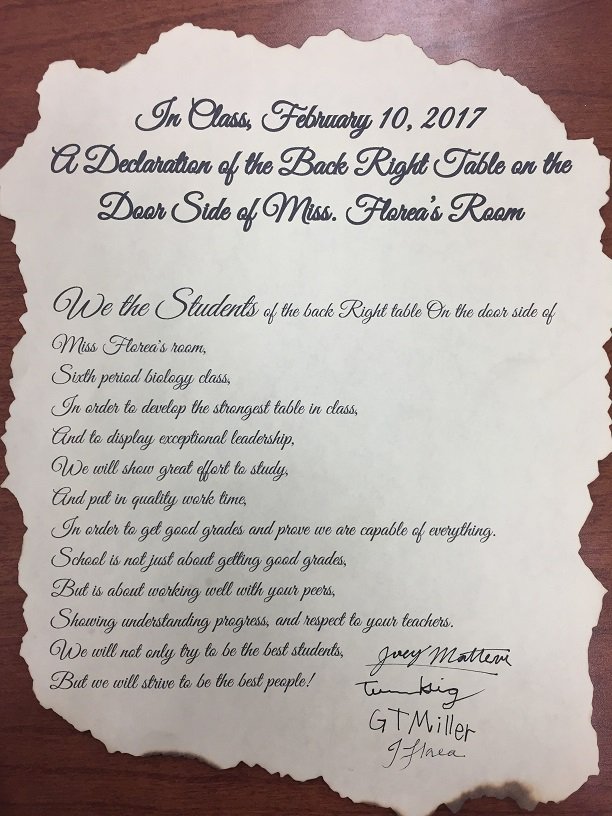 In Class, February 10, 2017
A Declaration of the Back Right Table on the
Door Side of Miss. Florea's Room
We the Students of the back Right table On the door side of
Miss Florea's room,
Sixth period biology class,
In order to develop the strongest table in class,
And to display exceptional leadership,
We will show great effort to study,
And put in quality work time,
In order to get good grades and prove we are capable of everything.
School is not just about getting good grades,
But is about working well with your peers,
Showing understanding progress, and respect to your teachers.
We will not only try to be the best students,
But we will strive to be the best people!
Joey
GT Miller
J Florea